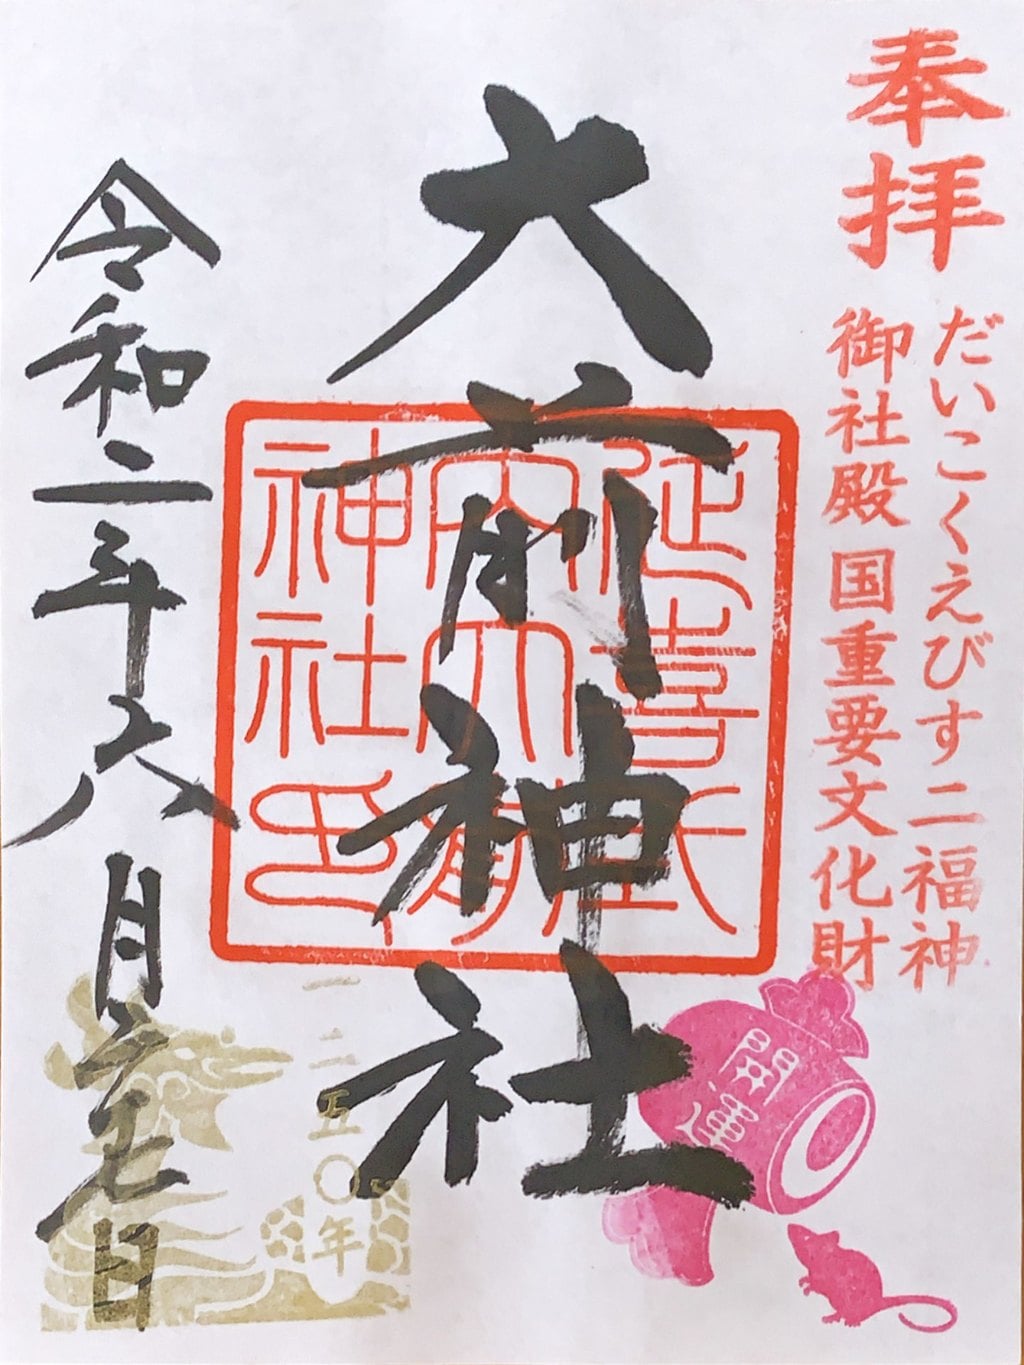 奉拝
だいこくえびす二福神
御社殿 国重要文化財
大前神社
延喜式
内大前
神社印
開運
一二五〇年
令和二年六月七日